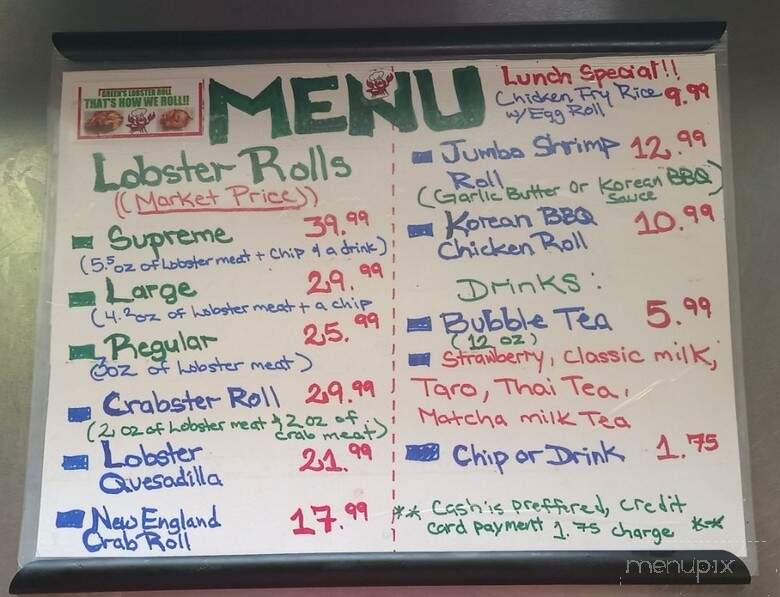 GREEN'S LOBSTER ROLL
THAT'S HOW WE ROLL!!
MENU
Lobster Rolls
((Market Price))
Supreme 39.99
(5.5oz of Lobster meat + chip & a drink)
Large 29.99
(4.2oz of Lobster meat + a chip
Regular 25.99
(3oz of Lobster meat)
Crabster Roll 29.99
(2 oz of Lobster meat & 2 oz of
crab meat)
Lobster 21.99
Quesadilla
New England 17.99
Crab Roll
Lunch Special!!
Chicken Fry Rice 9.99
w/ Egg Roll
Jumbo Shrimp 12.99
Roll
(Garlic Butter or Korean BBQ)
Sauce
Korean BBQ 10.99
Chicken Roll
Drinks:
Bubble Tea 5.99
(12 oz)
Strawberry, Classic milk,
Taro, Thai Tea,
Matcha milk Tea
Chip or Drink 1.75
** Cash is preffered, credit
card payment 1.75 charge **
menupix